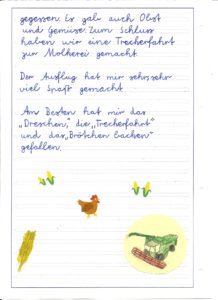 gegessen. Es gab auch Obst
und Gemüse. Zum Schluss
haben wir eine Treckerfahrt
zur Molkerei gemacht.
Der Ausflug hat mir sehr, sehr
viel Spaß gemacht
Am Besten hat mir das
„Dreschen", die „Treckerfahrt"
und das „Brötchen backen"
gefallen.